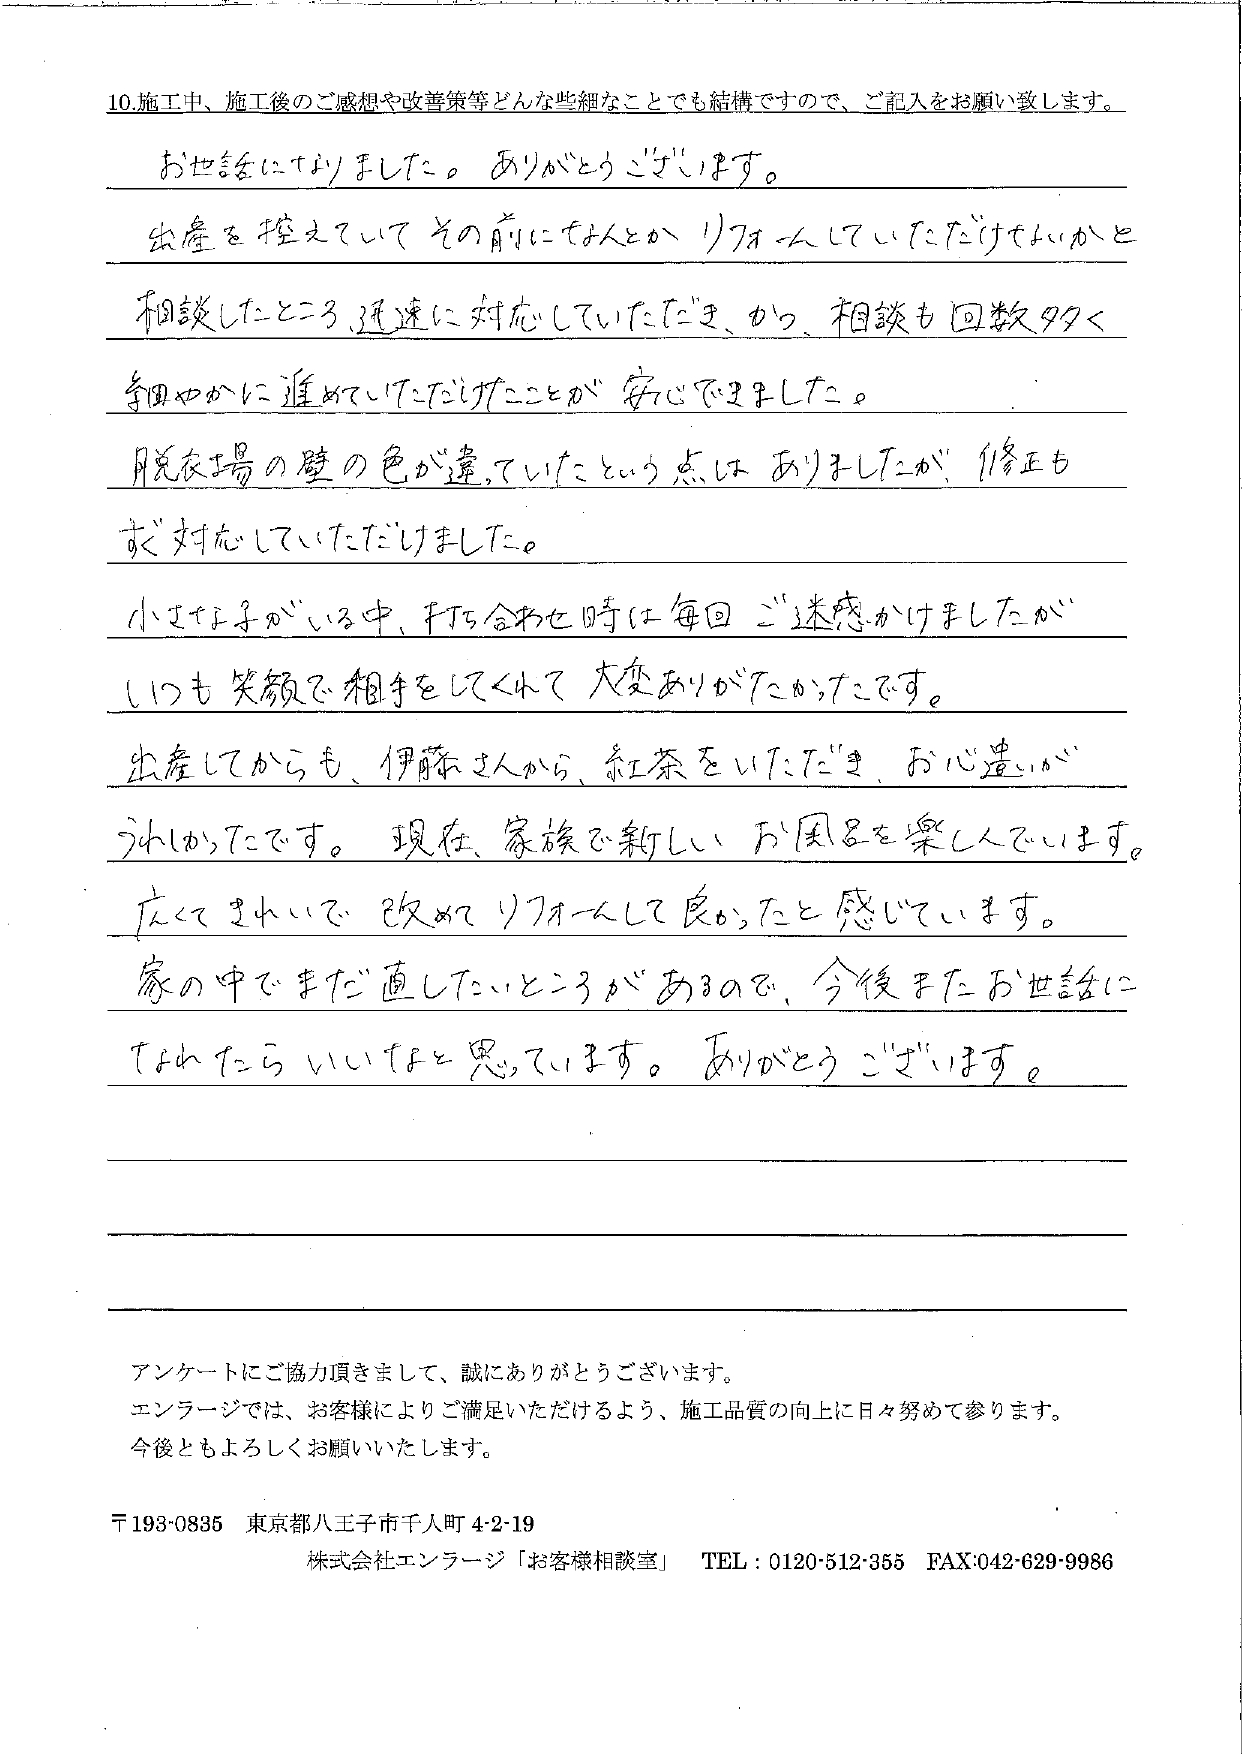 10.施工中、施工後のご感想や改善策等どんな些細なことでも結構ですので、ご記入をお願い致します。
お世話になりました。ありがとうございます。
出産を控えていてその前になんとかリフォームしていただけないかと
相談したところ、迅速に対応していただき、かつ、相談も回数多く
細やかに進めていただけたことが安心できました。
脱衣場の壁の色が違っていたという点はありましたが、修正も
すぐ対応していただけました。
小さな子がいる中、打ち合わせ時は毎回ご迷惑かけましたが
いつも笑顔で相手をしてくれて大変ありがたかったです。
出産してからも、伊藤さんから、紅茶をいただき、お心遣いが
うれしかったです。現在、家族で新しいお風呂を楽しんでいます。
広くてきれいで改めてリフォームして良かったと感じています。
家の中でまだ直したいところがあるので、今後またお世話に
なれたらいいなと思っています。ありがとうございます。
アンケートにご協力頂きまして、誠にありがとうございます。
エンラージでは、お客様によりご満足いただけるよう、施工品質の向上に日々努めて参ります。
今後ともよろしくお願いいたします。
〒193-0835 東京都八王子市千人町 4-2-19
株式会社エンラージ「お客様相談室」 TEL：0120-512-355 FAX:042-629-9986